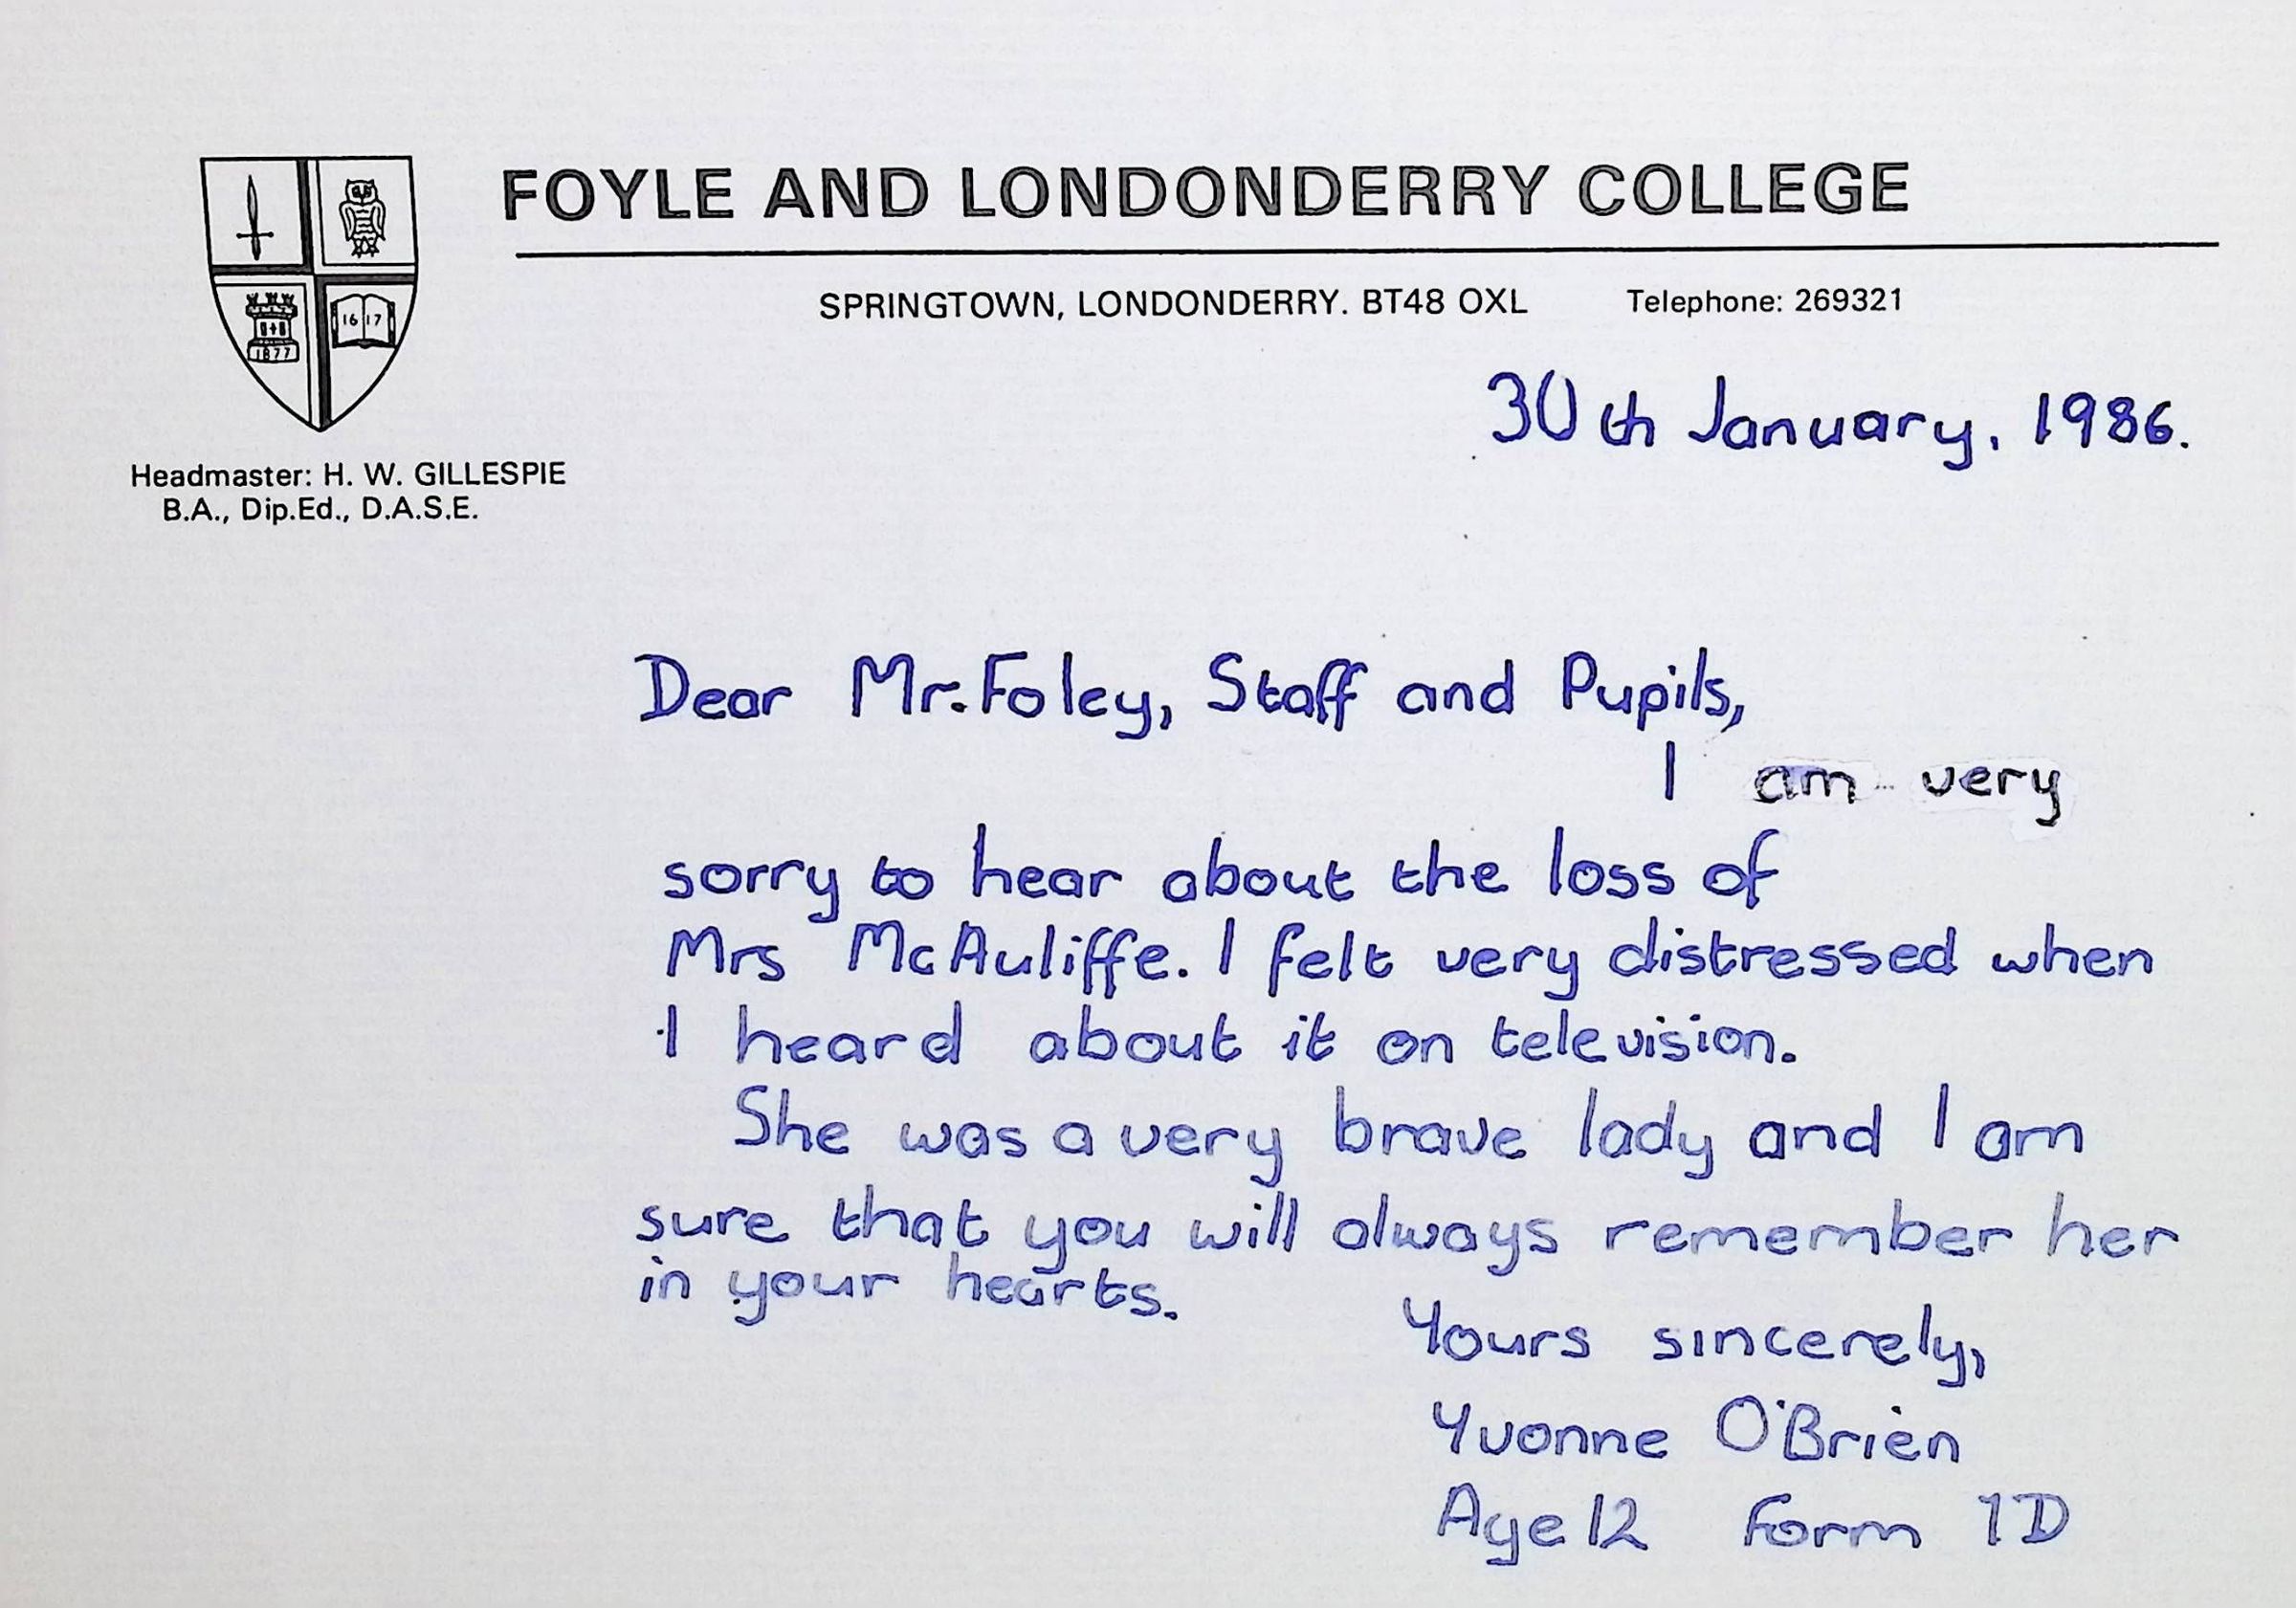 FOYLE AND LONDONDERRY COLLEGE
SPRINGTOWN, LONDONDERRY. BT48 OXL Telephone: 269321
16 17
1877
Headmaster: H. W. GILLESPIE
B.A., Dip.Ed., D.A.S.E.
30th January, 1986.
Dear Mr. Foley, Staff and Pupils,
I am very
sorry to hear about the loss of
Mrs McAuliffe. I felt very distressed when
I heard about it on television.
She was a very brave lady and I am
sure that you will always remember her
in your hearts.
Yours sincerely,
Yvonne O'Brien
Age 12 Form 1D